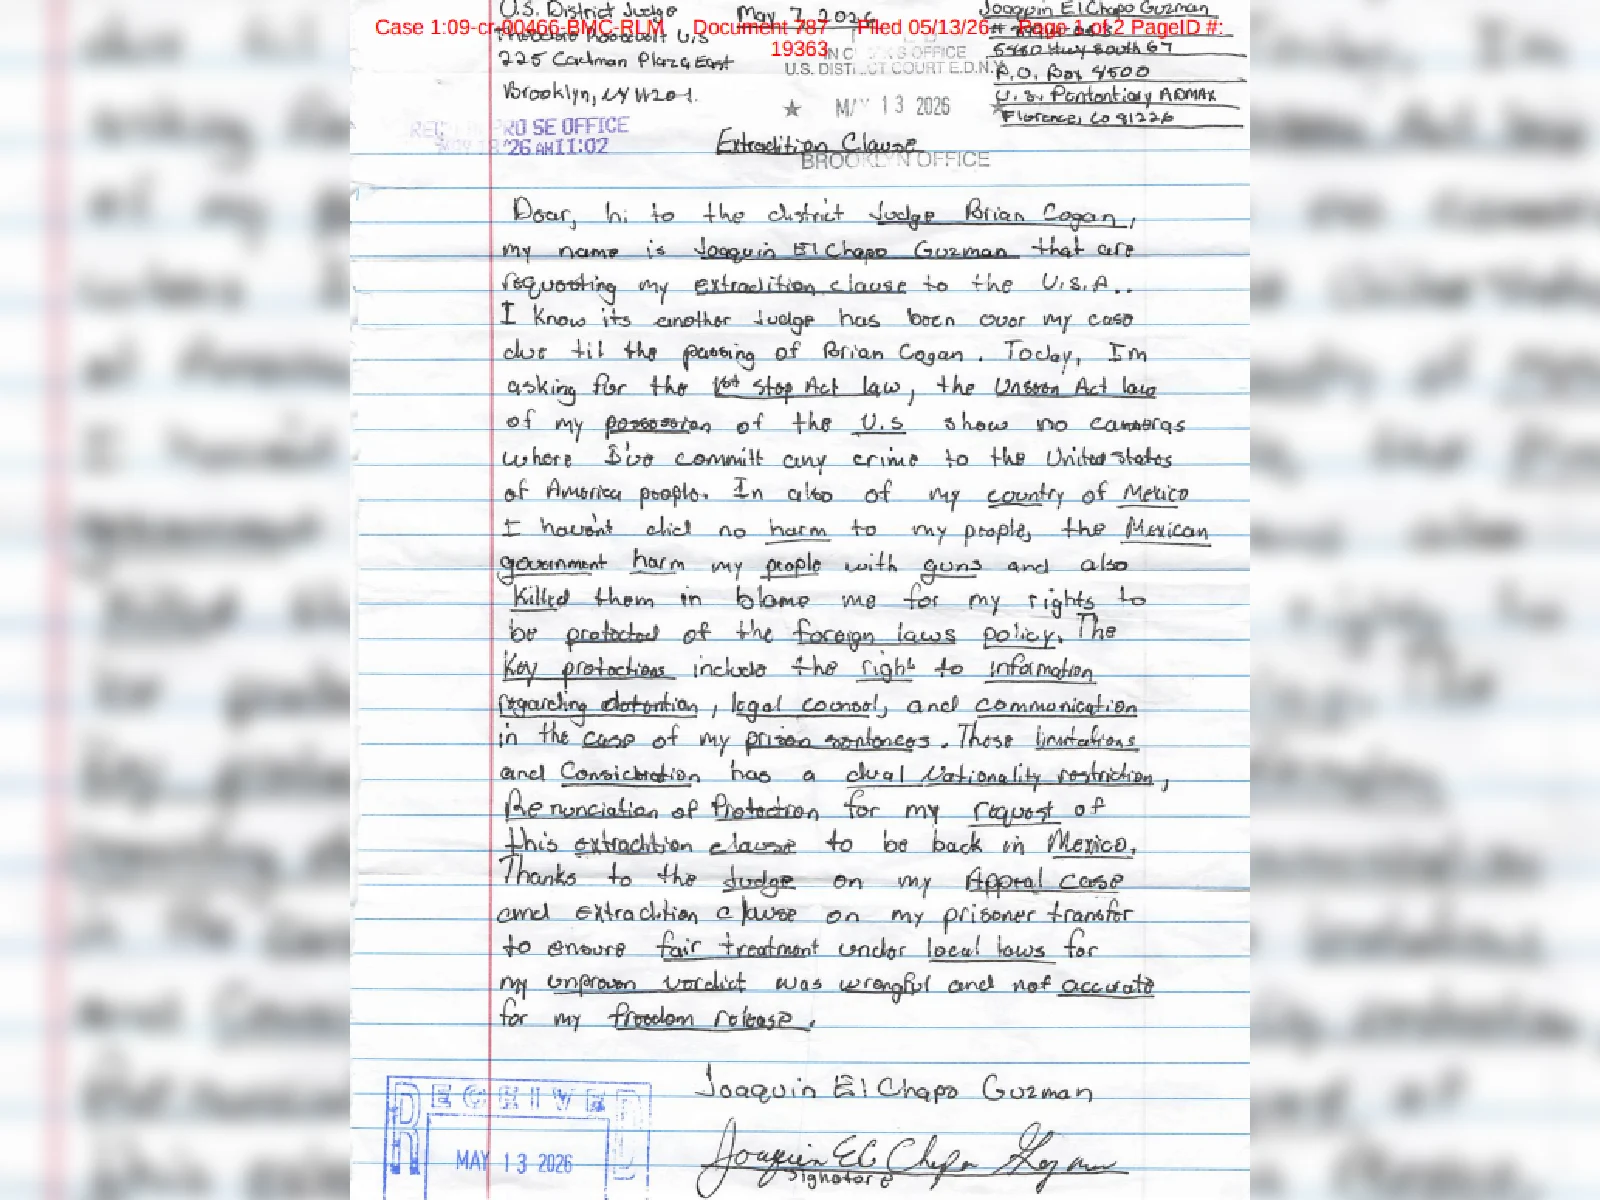 U.S. District Judge May 7, 2026 Joaquin El Chapo Guzman
Case 1:09-cr-00466-BMC-RLM Document 787 Filed 05/13/26 Page 1 of 2 PageID #:
19363
Theodore Roosevelt U.S
IN CLERK'S OFFICE
5880 Hwy South 67
225 Cadman Plaza East
U.S. DISTRICT COURT E.D.N.Y.
P.O. Box 8500
Brooklyn, NY 11201.
U.S. Pentontiary ADMAX
★ MAY 13 2026 ★
Florence, Co 81226
REC'D IN PRO SE OFFICE
MAY 13 '26 AM 11:02
Extradition Clause
BROOKLYN OFFICE
Dear, hi to the district Judge Brian Cogan,
my name is Joaquin El Chapo Guzman that are
requesting my extradition clause to the U.S.A..
I know its another Judge has been over my case
due til the passing of Brian Cogan. Today, Im
asking for the 1st stop Act law, the Unseen Act law
of my possession of the U.S show no cameras
where I've committ any crime to the United States
of America people. In also of my country of Mexico
I haven't did no harm to my people, the Mexican
government harm my people with guns and also
killed them in blame me for my rights to
be protected of the foreign laws policy. The
Key protections include the right to information
regarding detention, legal counsel, and communication
in the case of my prison sentences. These limitations
and Consideration has a dual Nationality restriction,
Renunciation of Protection for my request of
this extradition clause to be back in Mexico.
Thanks to the Judge on my Appeal case
and extradition clause on my prisoner transfer
to ensure fair treatment under local laws for
my unproven verdict was wrongful and not accurate
for my freedom release.
Joaquin El Chapo Guzman
RECEIVED
MAY 13 2026
Joaquin El Chapo Guzman
Signature